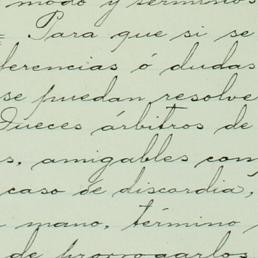 modo y términos
= Para que si se
ferencias ó dudas
se puedan resolve
Jueces árbitros de
s, amigables com
caso de discordia,
mano, término
de prorrogarlos